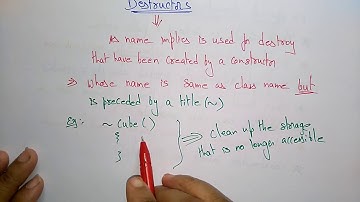 Destructors
⇓
As name implies is used for destroy
that have been created by a constructor
⇒ whose name is same as class name but
is preceded by a title (~)
Eg: ~ Cube ( )
{
}
⇒ clean up the storage
that is no longer accessible